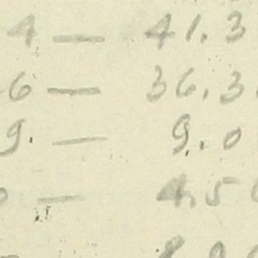 4 — 41.3
6 — 36.3
9. — 9.0
0 — 4.50